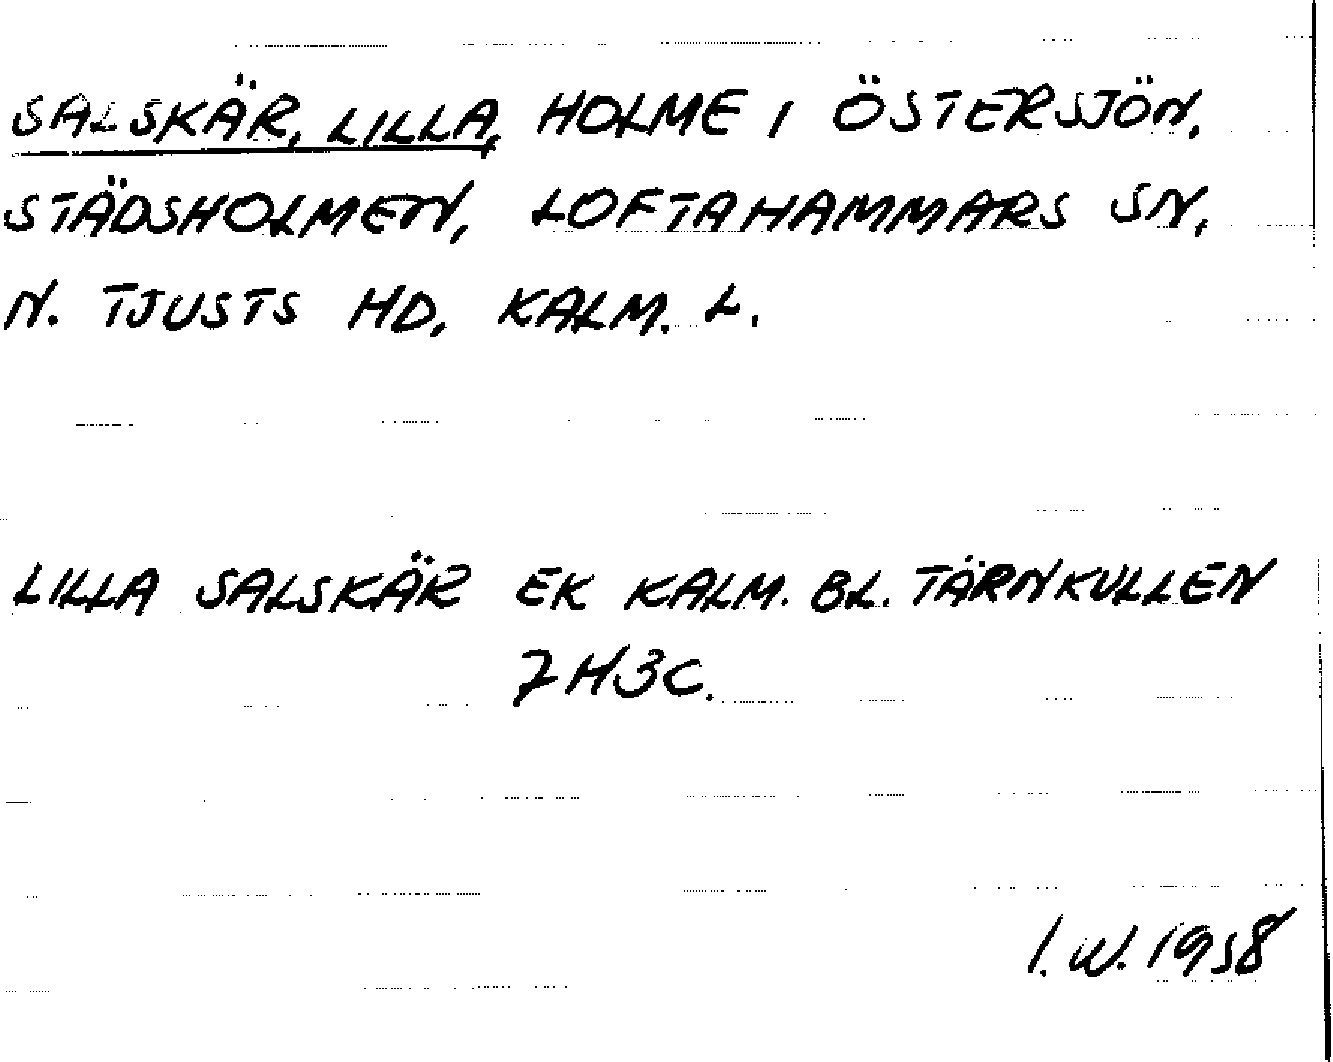 SALSKÄR, LILLA, HOLME I ÖSTERSJÖN,
STÄDSHOLMEN, LOFTAHAMMARS SN,
N. TJUSTS HD, KALM. L.
LILLA SALSKÄR EK KALM. BL. TÄRNKULLEN
7H3C.
I.W. 1958